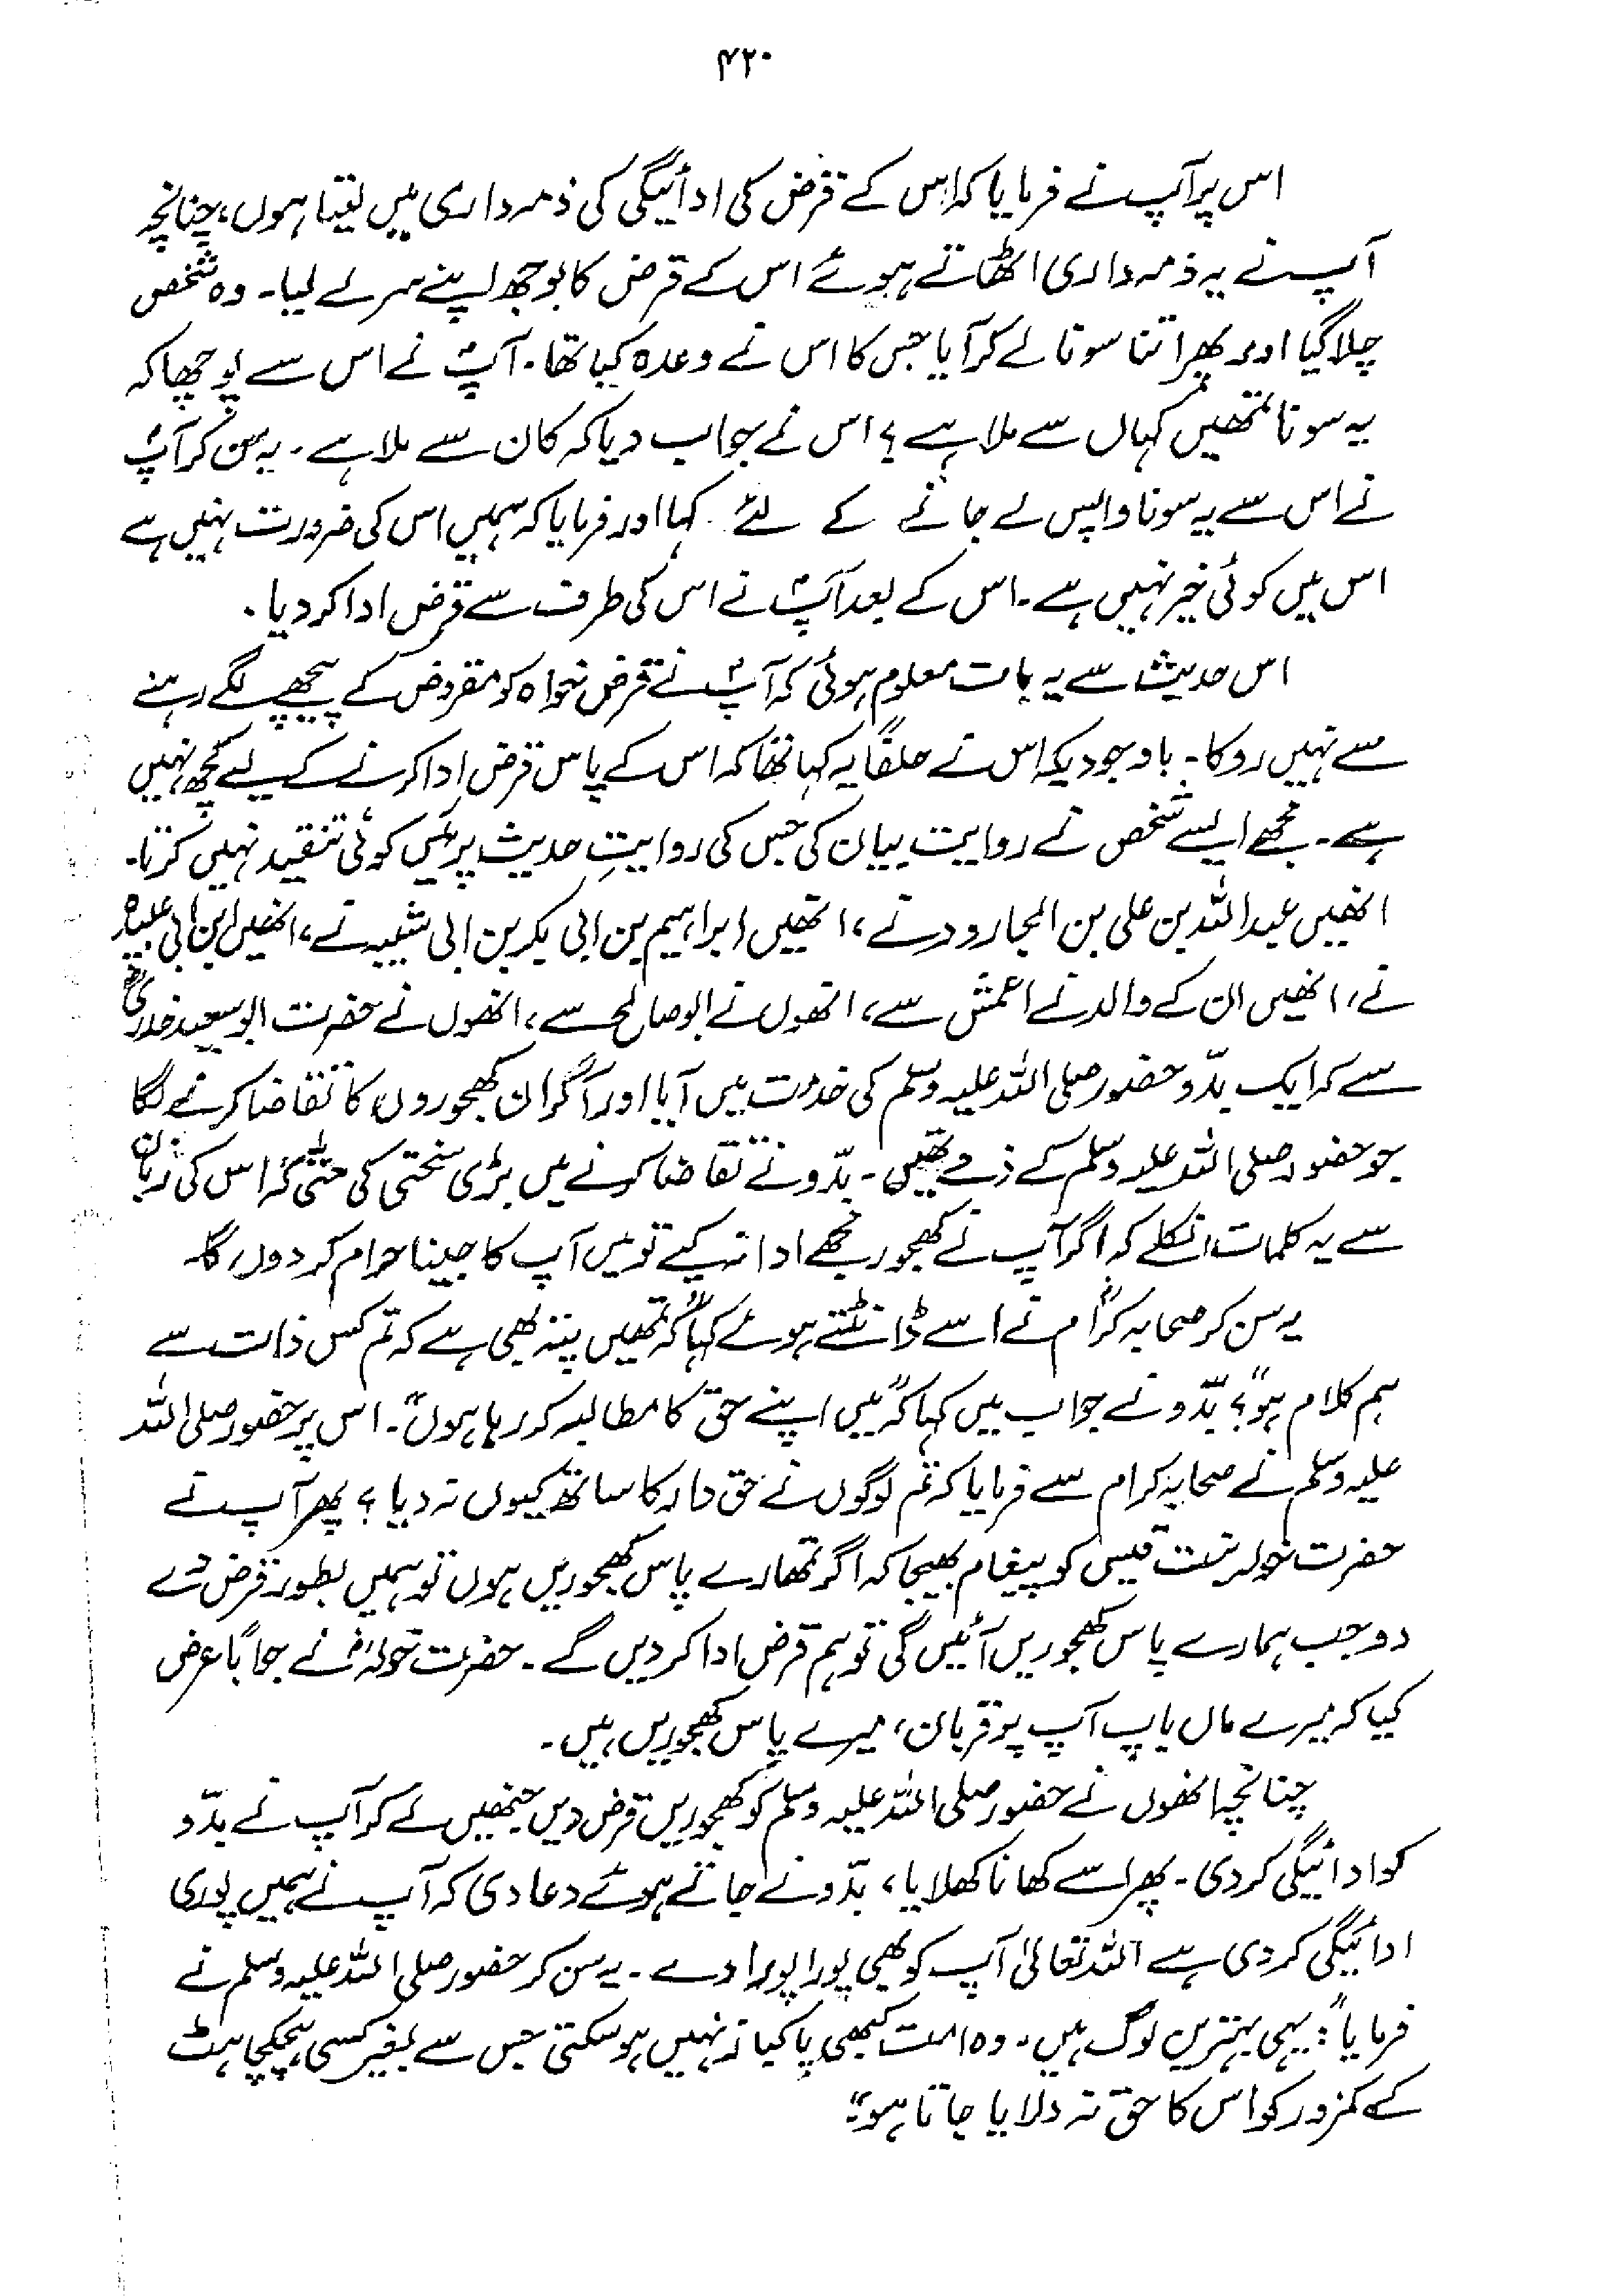 ۴۲۰
اس پر آپ نے فرمایا کہ اس کے قرض کی ادائیگی کی ذمہ داری میں لیتا ہوں، چنانچہ
آپ نے یہ ذمہ داری اٹھاتے ہوئے اس کے قرض کا بوجھ اپنے سر لے لیا۔ وہ شخص
چلا گیا اور پھر اتنا سونا لے کر آیا جس کا اس نے وعدہ کیا تھا۔ آپؐ نے اس سے پوچھا کہ
یہ سونا تمھیں کہاں سے ملا ہے؟ اس نے جواب دیا کہ کان سے ملا ہے۔ یہ سن کر آپؐ
نے اس سے یہ سونا واپس لے جانے کے لئے کہا اور فرمایا کہ ہمیں اس کی ضرورت نہیں ہے
اس میں کوئی خیر نہیں ہے۔ اس کے بعد آپؐ نے اس کی طرف سے قرض ادا کر دیا۔
اس حدیث سے یہ بات معلوم ہوئی کہ آپؐ نے قرض خواہ کو مقروض کے پیچھے لگے رہنے
سے نہیں روکا۔ باوجودیکہ اس نے حلفاً یہ کہا تھا کہ اس کے پاس قرض ادا کرنے کے لیے کچھ نہیں
ہے۔ مجھے ایسے شخص نے روایت بیان کی جس کی روایتِ حدیث پر میں کوئی تنقید نہیں کرتا۔
انھیں عبداللہ بن علی بن الجارود نے، انھیں ابراہیم بن ابی بکر بن ابی شیبہ نے، انھیں ابن ابی عبیدہ
نے، انھیں ان کے والد نے اعمش سے، انھوں نے ابوصالح سے، انھوں نے حضرت ابوسعید خدریؓ
سے کہ ایک بدّو حضور صلی اللہ علیہ وسلم کی خدمت میں آیا اور آ کر ان کھجوروں کا تقاضا کرنے لگا
جو حضور صلی اللہ علیہ وسلم کے ذمے تھیں۔ بدّو نے تقاضا کرنے میں بڑی سختی کی حتّٰی کہ اس کی زبان
سے یہ کلمات نکلے کہ اگر آپ نے کھجور مجھے ادا نہ کیے تو میں آپ کا جینا حرام کر دوں گا۔
یہ سن کر صحابہ کرامؓ نے اسے ڈانٹتے ہوئے کہا کہ "تمھیں پتہ بھی ہے کہ تم کس ذات سے
ہم کلام ہو"؟ بدّو نے جواب میں کہا کہ "میں اپنے حق کا مطالبہ کر رہا ہوں"۔ اس پر حضور صلی اللہ
علیہ وسلم نے صحابہ کرام سے فرمایا کہ تم لوگوں نے حق دار کا ساتھ کیوں نہ دیا؟ پھر آپ نے
حضرت خولہ بنت قیس کو پیغام بھیجا کہ اگر تمھارے پاس کھجوریں ہوں تو ہمیں بطور قرض دے
دو جب ہمارے پاس کھجوریں آئیں گی تو ہم قرض ادا کر دیں گے۔ حضرت خولہؓ نے جواباً عرض
کیا کہ میرے ماں باپ آپ پر قربان، میرے پاس کھجوریں ہیں۔
چنانچہ انھوں نے حضور صلی اللہ علیہ وسلم کو کھجوریں قرض دیں جنھیں لے کر آپ نے بدّو
کو ادائیگی کر دی۔ پھر اسے کھانا کھلایا، بدّو نے جاتے ہوئے دعا دی کہ آپ نے ہمیں پوری
ادائیگی کر دی ہے اللہ تعالیٰ آپ کو بھی پورا پورا دے۔ یہ سن کر حضور صلی اللہ علیہ وسلم نے
فرمایا: "یہی بہترین لوگ ہیں۔ وہ امت کبھی پاکیزہ نہیں ہو سکتی جس سے بغیر کسی ہچکچاہٹ
کے کمزور کو اس کا حق نہ دلایا جاتا ہو"۔